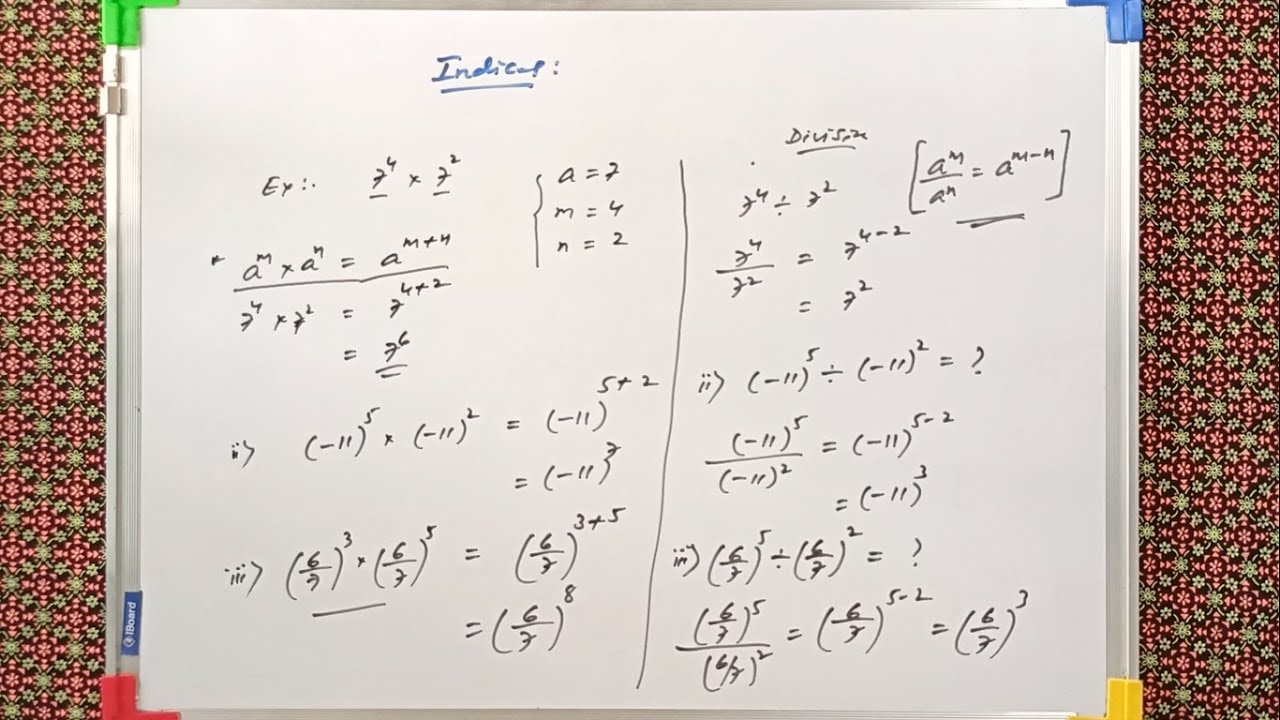 Indices:
Ex:. 7⁴ × 7²
{ a = 7
m = 4
n = 2
* aᵐ × aⁿ = aᵐ⁺ⁿ
7⁴ × 7² = 7⁴⁺²
= 7⁶
ii) (-11)⁵ × (-11)² = (-11)⁵⁺²
= (-11)⁷
iii) (6/7)³ × (6/7)⁵ = (6/7)³⁺⁵
= (6/7)⁸
Division
7⁴ ÷ 7²
[aᵐ/aⁿ = aᵐ⁻ⁿ]
7⁴/7² = 7⁴⁻²
= 7²
ii) (-11)⁵ ÷ (-11)² = ?
(-11)⁵/(-11)² = (-11)⁵⁻²
= (-11)³
iii) (6/7)⁵ ÷ (6/7)² = ?
(6/7)⁵/(6/7)² = (6/7)⁵⁻² = (6/7)³
iBoard